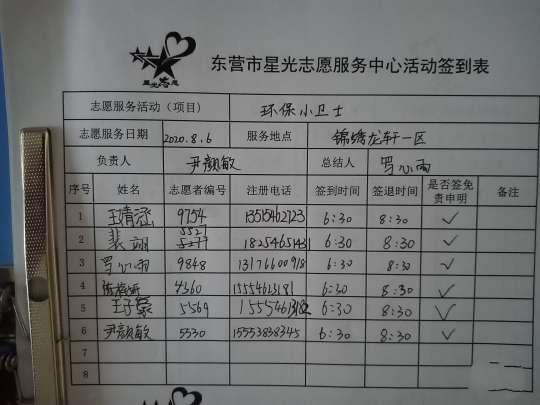 东营市星光志愿服务中心活动签到表
星光志愿
志愿服务活动(项目) 环保小卫士
志愿服务日期 2020.8.6 服务地点 锦绣龙轩一区
负责人 尹颜敏 总结人 罗心雨
序号 姓名 志愿者编号 注册电话 签到时间 签退时间 是否签免责申明 备注
1 王婧涵 9754 13515462723 6:30 8:30 ✓
2 裴翊 5527 5277 18254651431 6:30 8:30 ✓
3 罗心雨 9848 13176600918 6:30 8:30 ✓
4 4360 15554613181 6:30 8:30 ✓
5 王子豪 5569 6:30 8:30 ✓
6 尹颜敏 5530 15553838345 6:30 8:30 ✓
7
8